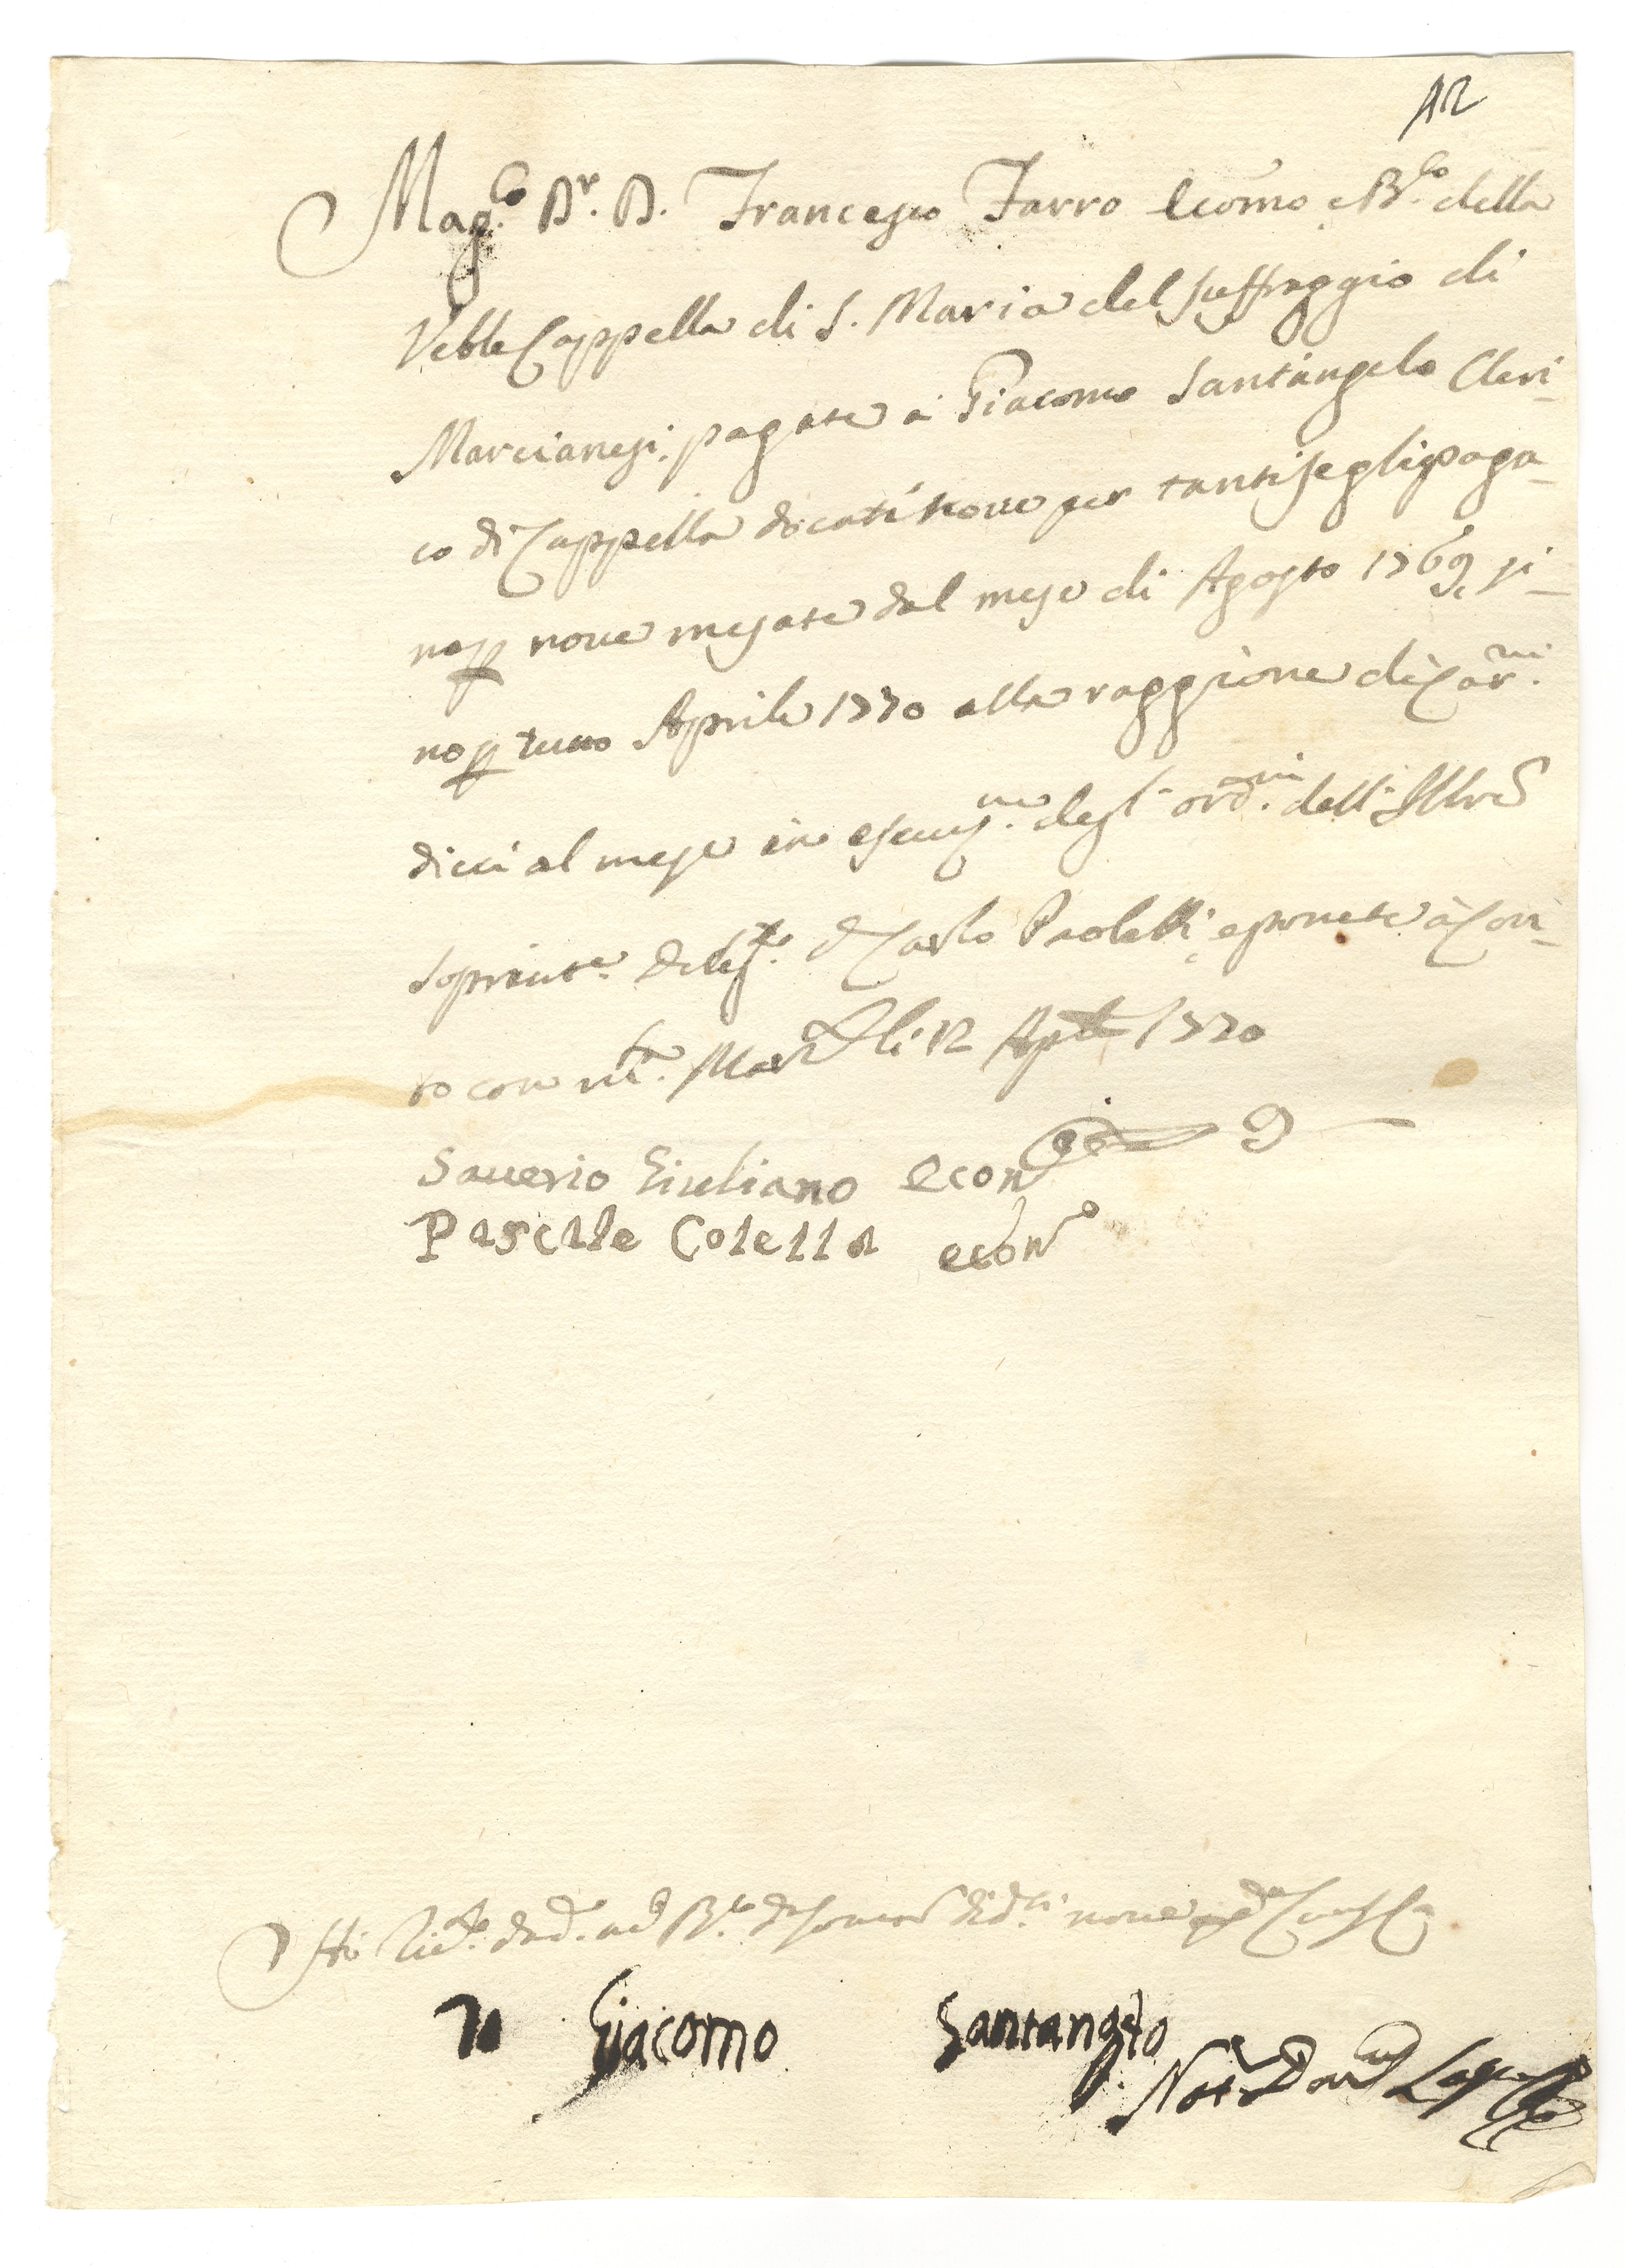 12
Mag.co Dr. D. Francesco Farro Econo e B.lo della
Veble Cappella di S. Maria del Suffraggio di
Marcianesi, pagate à Giacomo Santangelo Cleri-
co di Cappella docati nove per tanti se gli paga-
no p nove mesate dal mese di Agosto 1769, si-
no p tutto Aprile 1770 alla raggione di Car.ni
dieci al mese in esecuz.ne degl' ord.ni dell' Illre
Soprinte. Deleg.to D. Carlo Paoletti, e ponete à Con-
to con rta. Mar li 12 Aple 1770
9
Saverio Giuliano econo
Pascale Colella econo
nove
Io Giacomo Santangelo
Not.